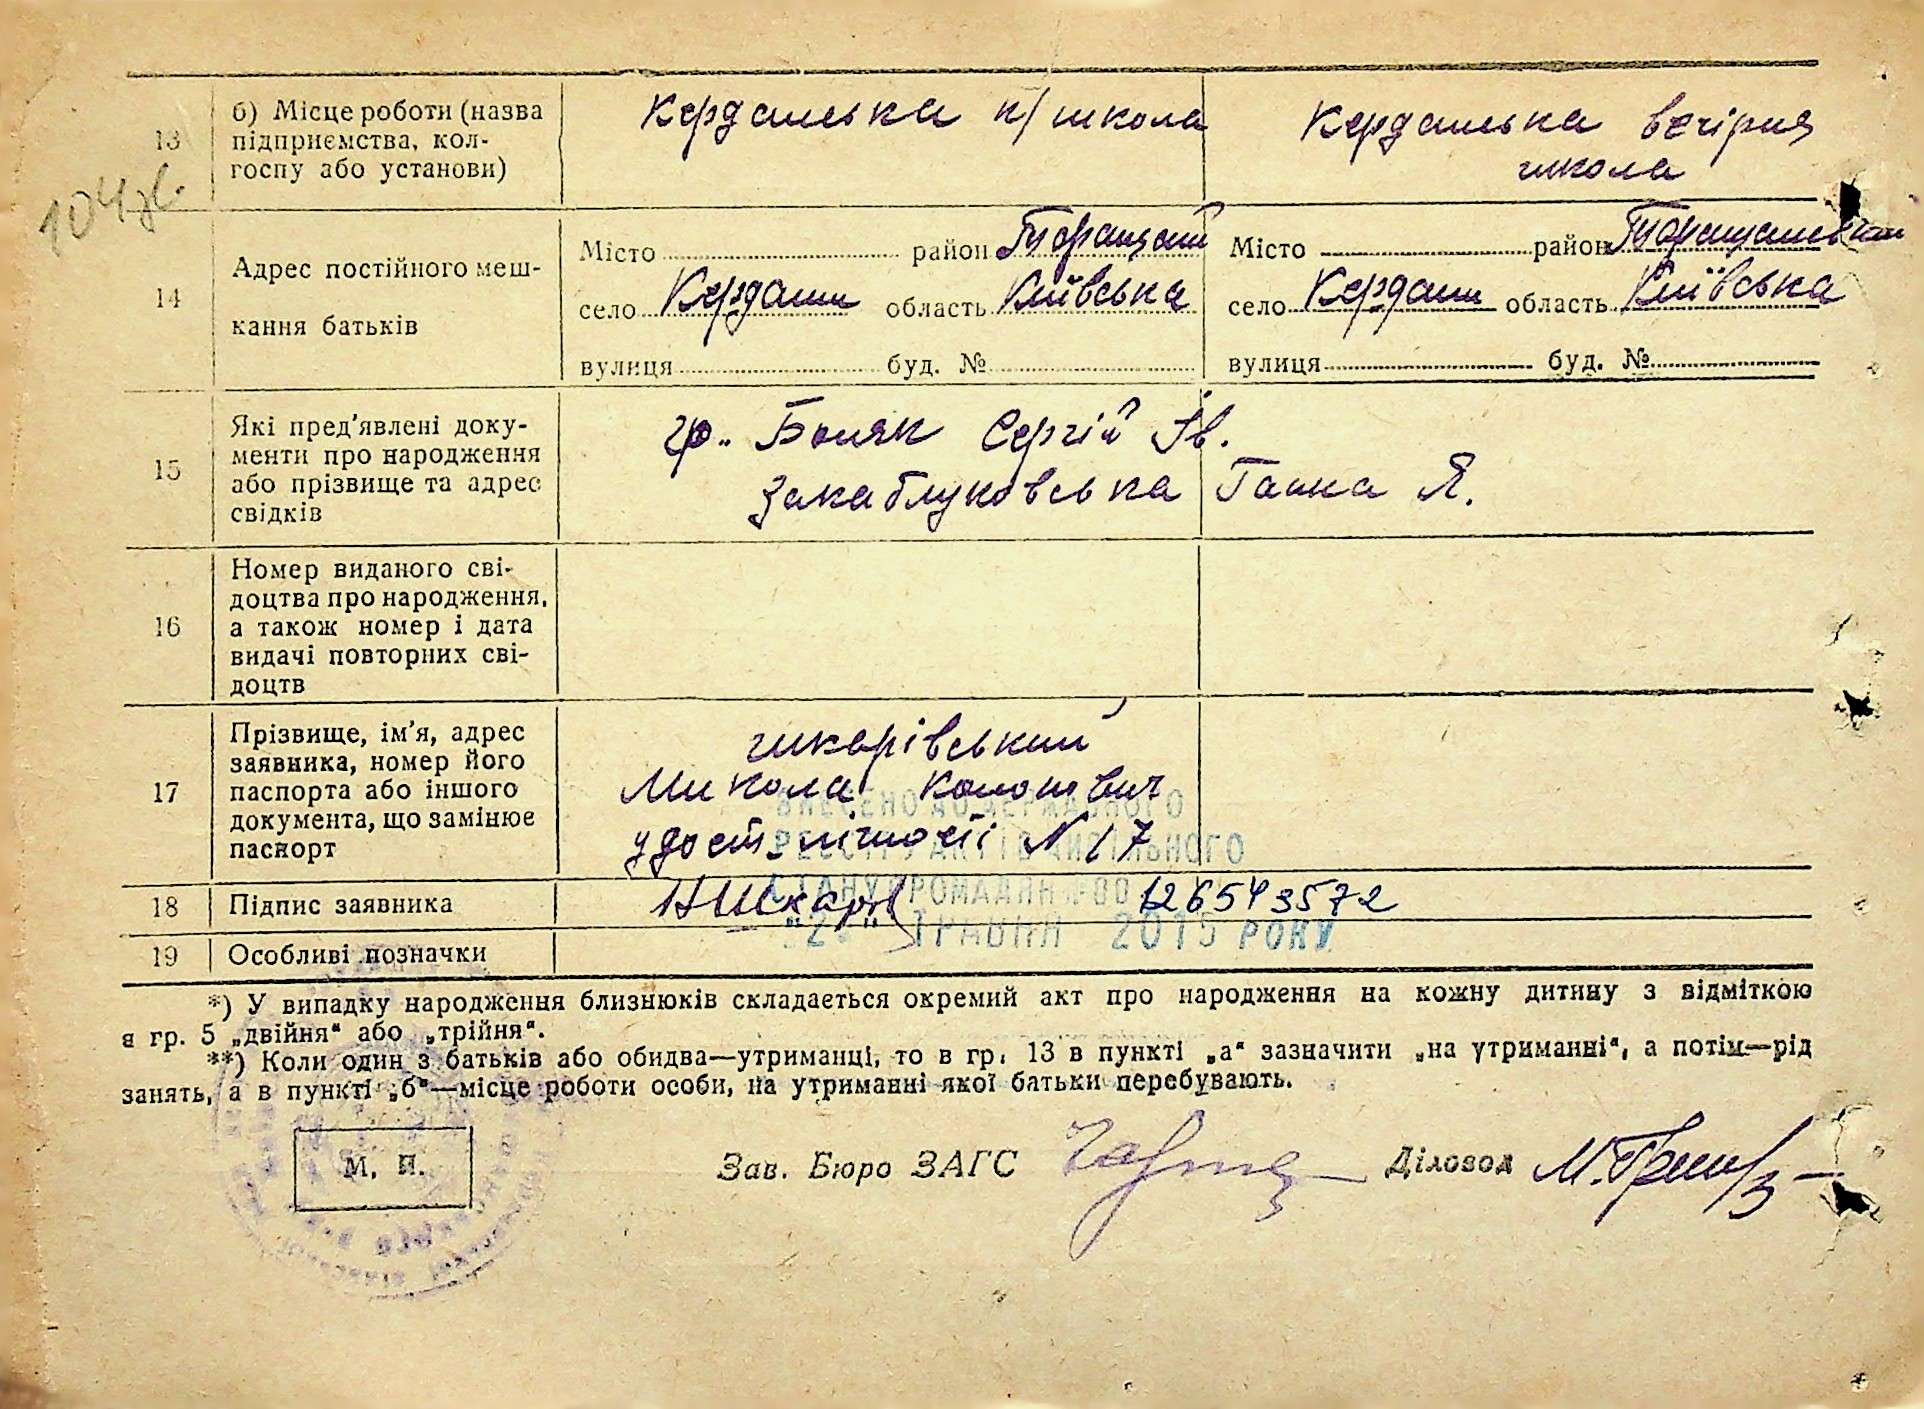 104ж.
13 б) Місце роботи (назва підприємства, кол-
госпу або установи)
Кердanська п/школа
Кердanська вечірня
школа
14 Адрес постійного меш-
кання батьків
Місто район Таращanський
село Кердани область Київська
вулиця буд. №
Місто район Таращanський
село Кердани область Київська
вулиця буд. №
15 Які пред'явлені доку-
менти про народження
або прізвище та адрес
свідків
гр. Сергій Ів.
Закаблуковська Ганна Я.
16 Номер виданого сві-
доцтва про народження,
а також номер і дата
видачі повторних сві-
доцтв
17 Прізвище, ім'я, адрес
заявника, номер його
паспорта або іншого
документа, що замінює
паспорт
Шкарівський
Микола
удост. лічності N 17
ВНЕСЕНО ДО ДЕРЖАВНОГО
РЕЄСТРУ АКТІВ ЦИВІЛЬНОГО
СТАНУ ГРОМАДЯН 00126543572
ТРАВНЯ 2015 РОКУ
18 Підпис заявника
19 Особливі позначки
*) У випадку народження близнюків складається окремий акт про народження на кожну дитину з відміткою
в гр. 5 „двійня“ або „трійня“.
**) Коли один з батьків або обидва—утриманці, то в гр. 13 в пункті „а“ зазначити „на утриманні“, а потім—рід
занять, а в пункті „б“—місце роботи особи, на утриманні якої батьки перебувають.
М. П.
Зав. Бюро ЗАГС
Діловод